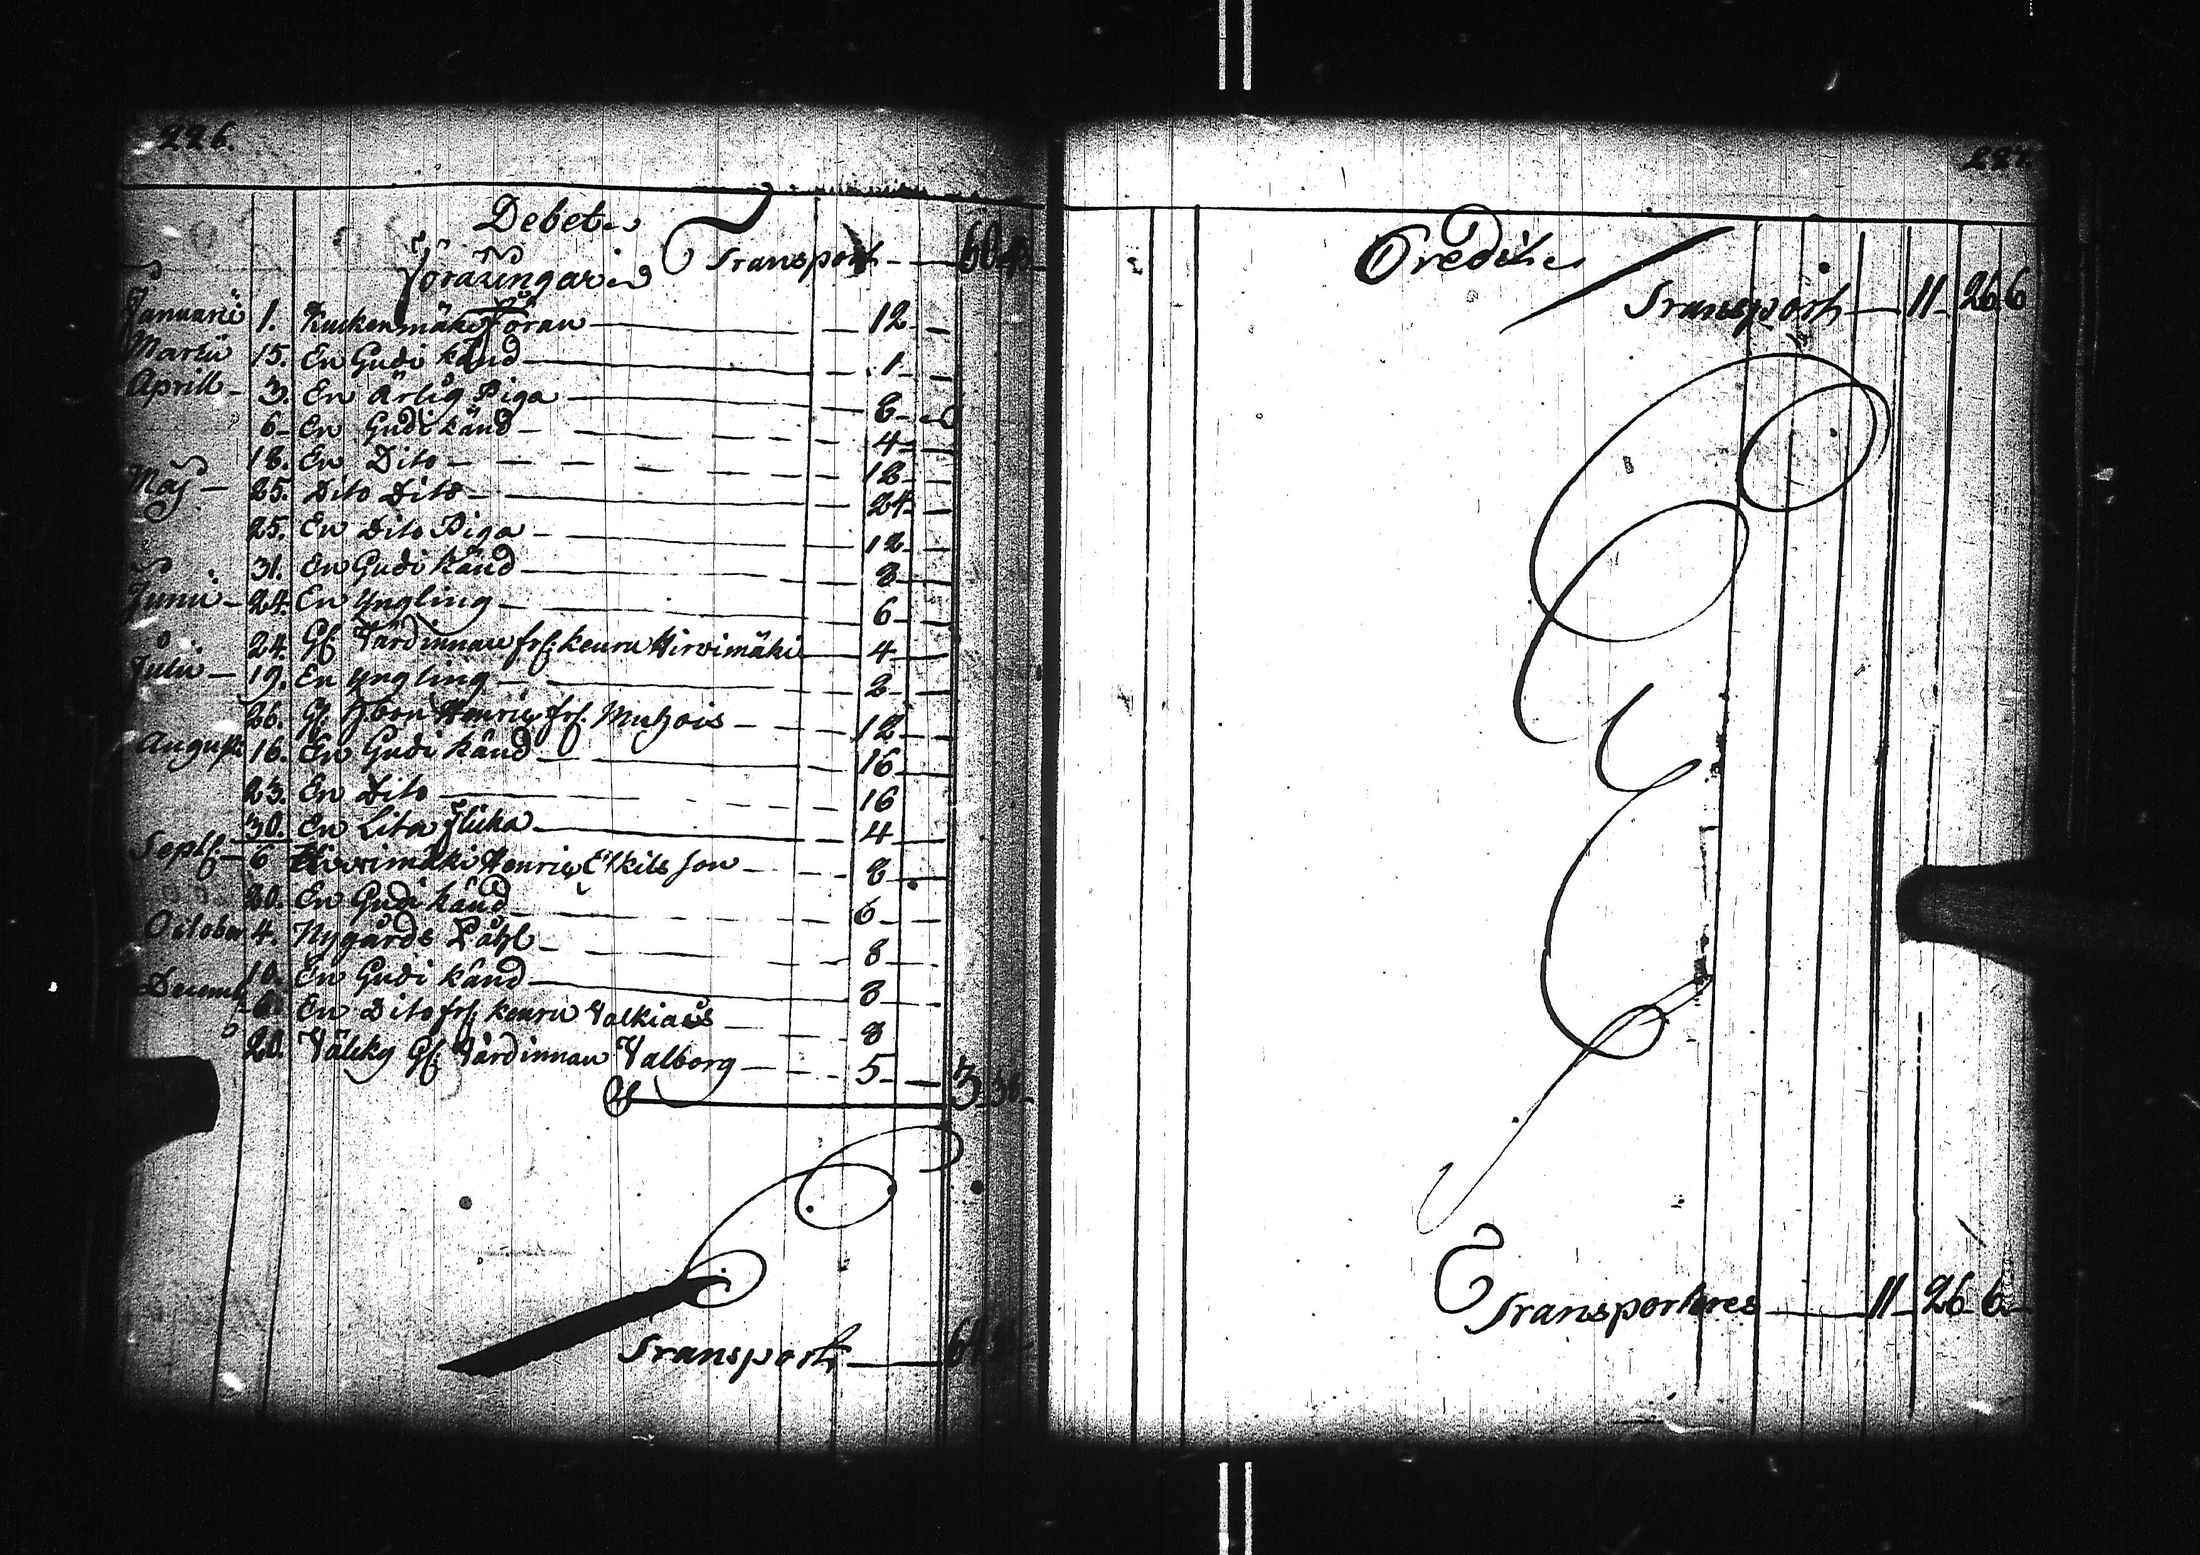 226.
Debet
Föräringar Transport — 60
Januarii 1. Kuckenmäki Jöran — 12 —
Martii 15. En Gudi känd — 1 —
Aprill — 3. En Ärlig Piga — 8 —
6 — En Gudi känd — 4 —
18. En Dito — 12 —
Maj — 25. Dito Dito — 24 —
25. En Dito Piga — 12 —
31. En Gudi känd — 8 —
Junii — 24. En Yngling — 6 —
24. Gl. Värdinnan frå. Keuru Hirvimäki — 4 —
Julii — 19. En Yngling — 2 —
26. Gl. Henric frå. — 12 —
August. 16. En Gudi känd — 16 —
23. En Dito — 16
30. En Liten flicka — 4 —
Sept. — 6 Hirvimäki Henric Eskils Son — 8 —
20. En Gudi känd — 6 —
October 4. Nygårds Påhl — 8 —
10. En Gudi känd — 8 —
Decemb. 6. En Dito frå Keuru — 8
20. Gl. Värdinnan Valborg — 5 — 3
Transport —
Credit
Transport — 11 — 26 6
Transporteres — 11 — 26 6 —